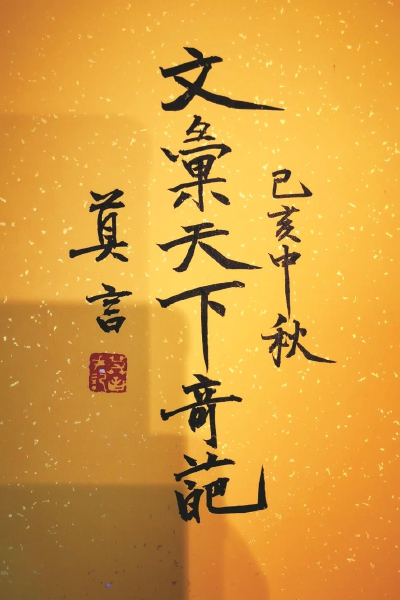 己亥中秋
文彙天下奇葩
莫言